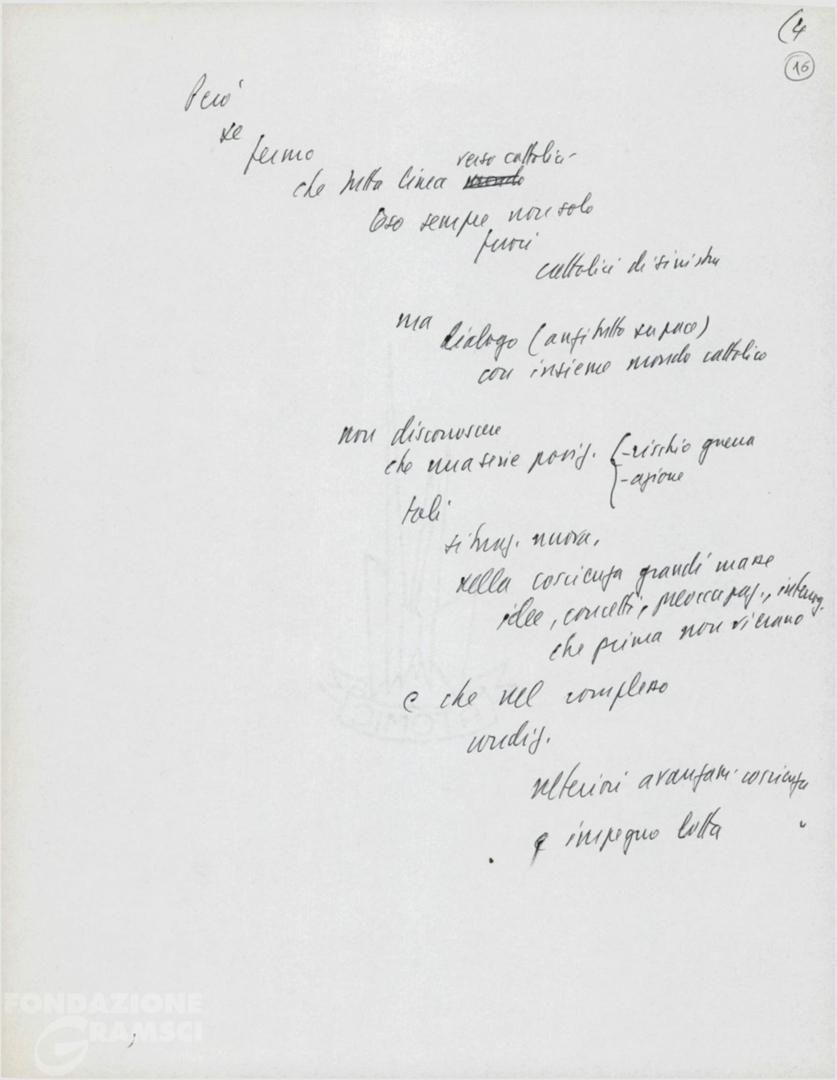 (4
16
Però
se
fermo
verso cattolici
che tutta linea mondo
sempre non solo
fuori
cattolici di sinistra
ma
dialogo (anzitutto su pace)
con insieme mondo cattolico
non disconoscere
che una serie posiz. - rischio guerra
- azione
tali
situaz. nuova,
nella coscienza grandi masse
idee, concetti, preoccupaz., interrog.
che prima non v'erano
e che nel complesso
condiz.
ulteriori avanzam. coscienza
e impegno lotta "
FONDAZIONE
GRAMSCI